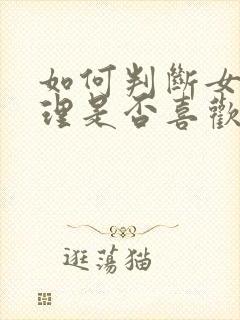 如何判斷女
理是否喜歡
逛蕩猫